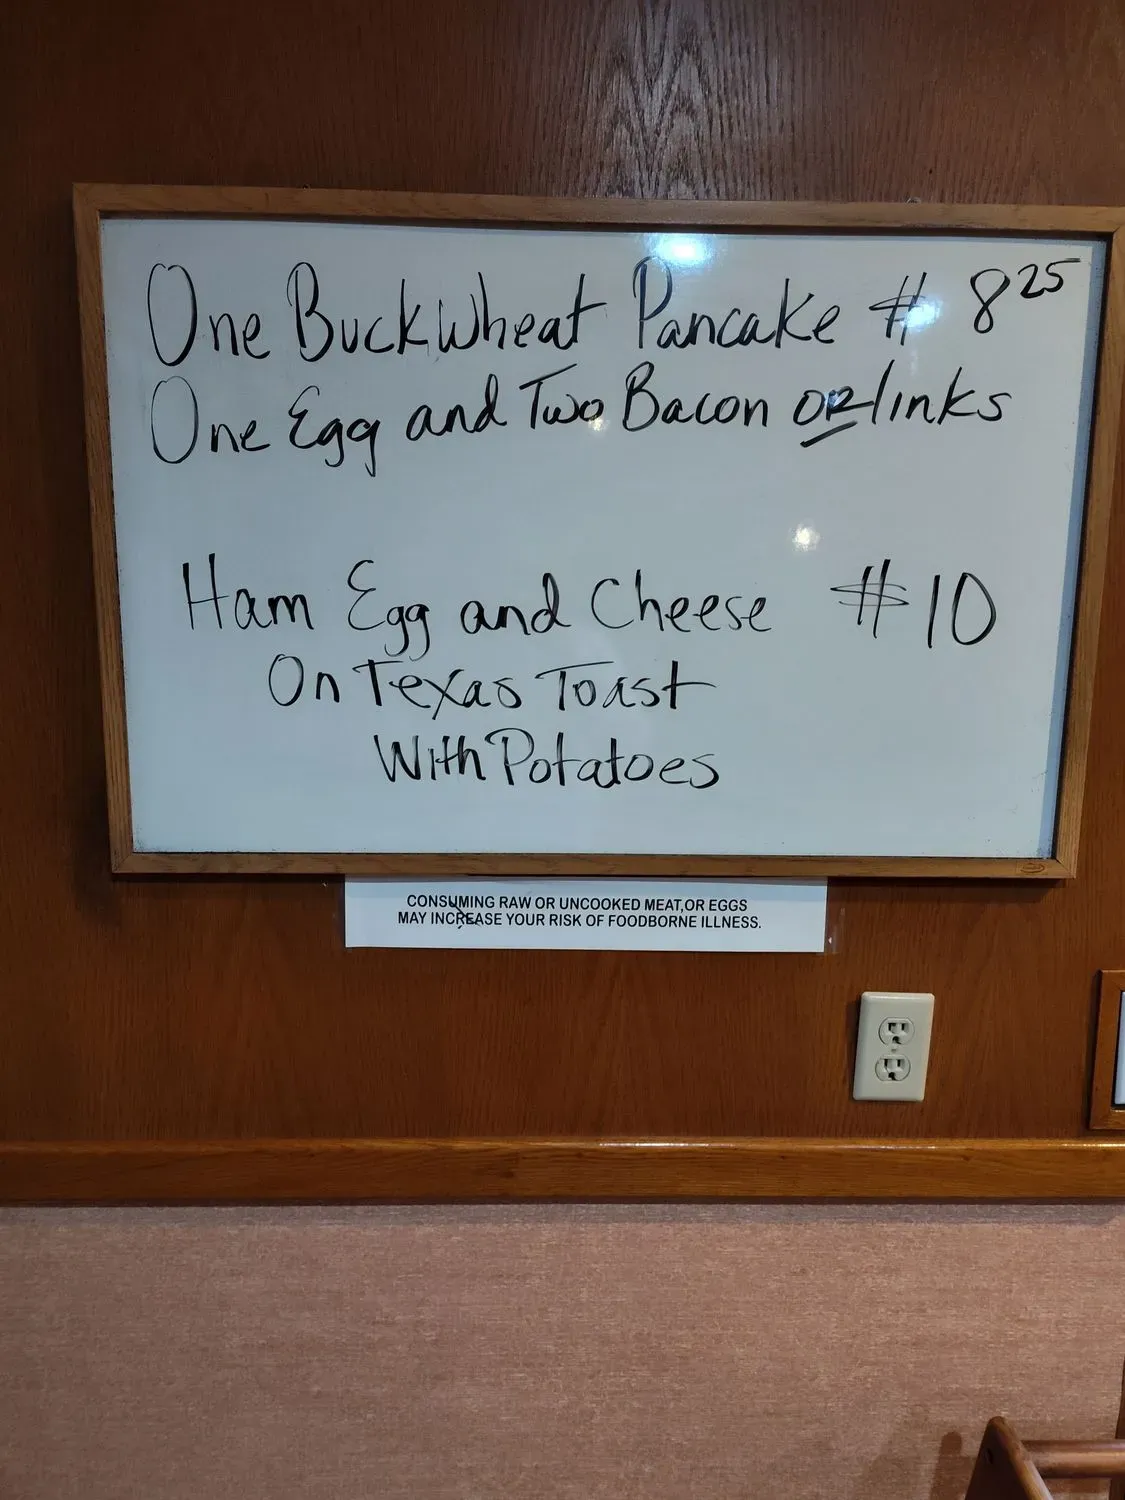 One Buckwheat Pancake # 8 25
One Egg and Two Bacon OR links
Ham Egg and Cheese # 10
On Texas Toast
With Potatoes
CONSUMING RAW OR UNCOOKED MEAT,OR EGGS
MAY INCREASE YOUR RISK OF FOODBORNE ILLNESS.